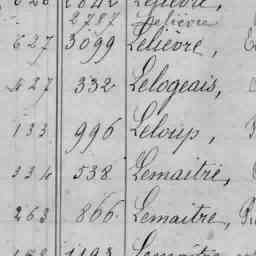 2787 Lelièvre
627 3099 Lelièvre,
427 332 Lelogeais,
133 996 Leloup,
334 538 Lemaitre,
263 866 Lemaitre,